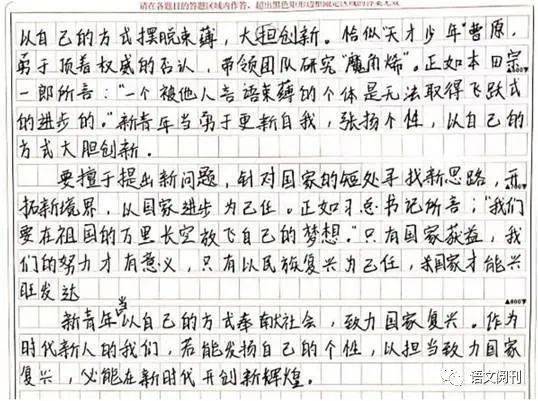 请在各题目的答题区域内作答，超出黑色矩形边框限定区域的答案无效
以自己的方式摆脱束薄，大担创新。恰似"天才少年"曹原，
勇于顶着权威的否认，带领团队研究"魔角烯"。正如本田宗
一郎所言："一个被他人言语束薄的个体是无法取得飞跃式
▲600▼
的进步的。"新青年当勇于更新自我，张扬个性，以自己的
方式大胆创新。
要擅于提出新问题，针对国家的短处寻找新思路，开
拓新境界，以国家进步为己任。正如习总书记所言："我们
要在祖国的万里长空放飞自己的梦想。"只有国家获益，我
们的努力才有意义，只有以民族复兴为己任，国家才能兴
旺发达
▲800▼
新青年当以自己的方式奉献社会，致力国家复兴。作为
时代新人的我们，若能发扬自己的个性，以担当致力国家
复兴，必能在新时代开创新辉煌。
语文阅刊